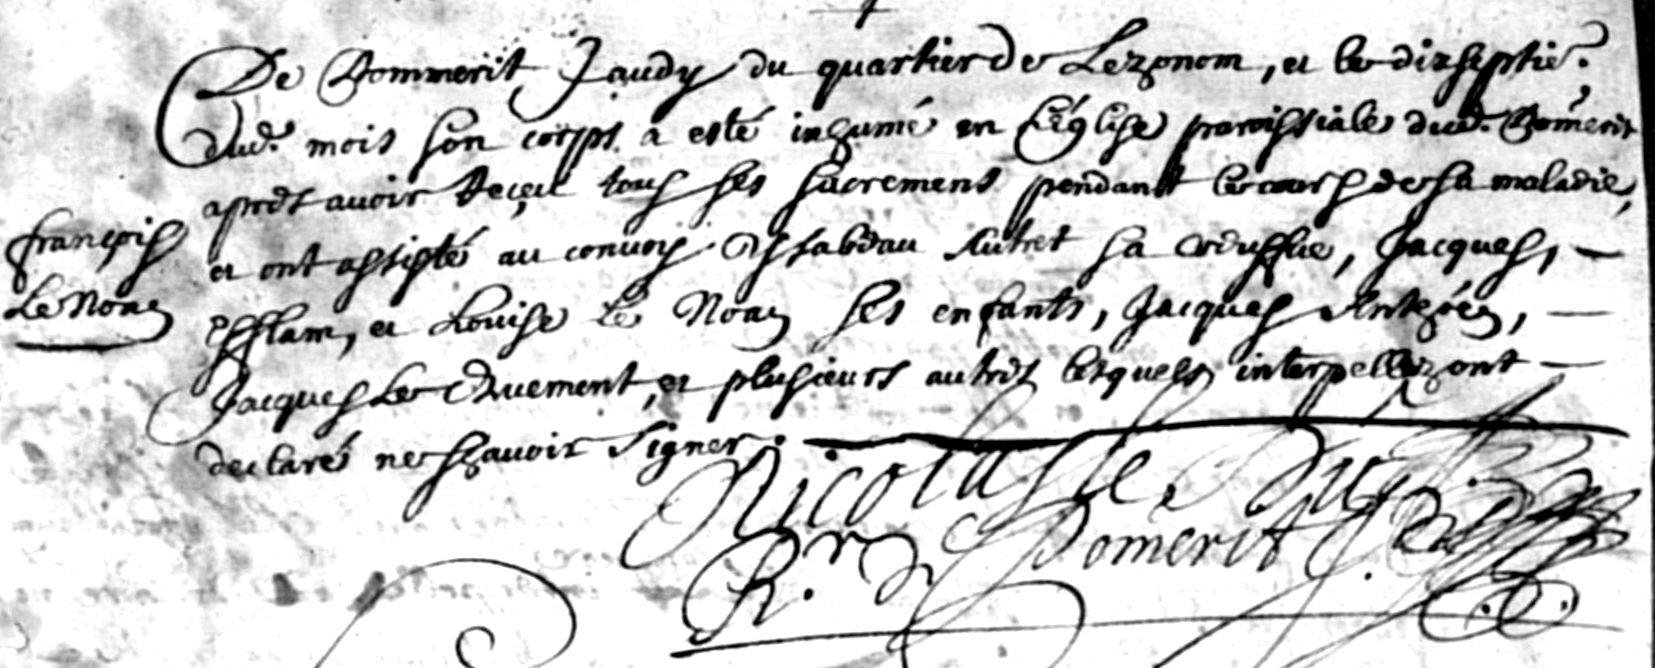 De Pommerit Jaudy du quartier de Lezonom, et le dixseptie.
dud. mois son corps a esté inhumé en l'église paroissiale dud. Pomerit
apres avoir reçeu tous ses sacrements pendant le cours de sa maladie,
françois
et ont assisté au convoy Autret sa veufue, Jacques, —
Le Noan
efflam, et Louise Le Noan ses enfants, Jacques —
Jacques Le et plusieurs autres lesquels interpellez ont —
declaré ne sçavoir signer.
Nicolas Le
R. Pomerit J.